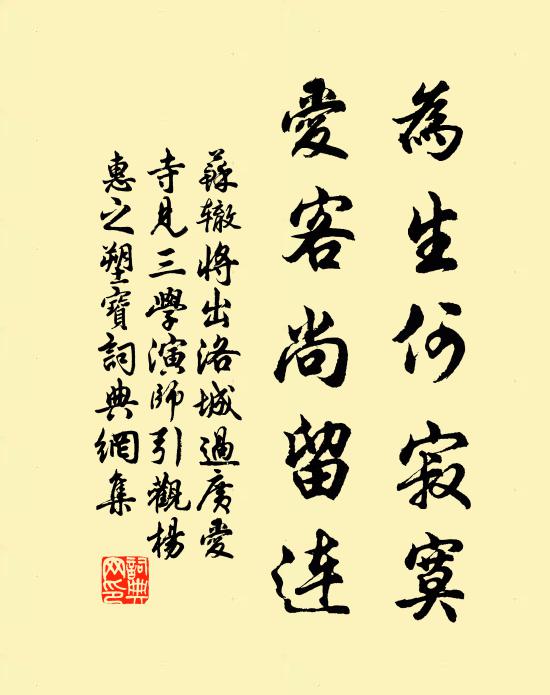 為生何寂寞
愛客尚留连
蘇辙将出洛城過廣愛
寺見三學演師引觀楊
惠之塑寶詞典網集
詞典
网印